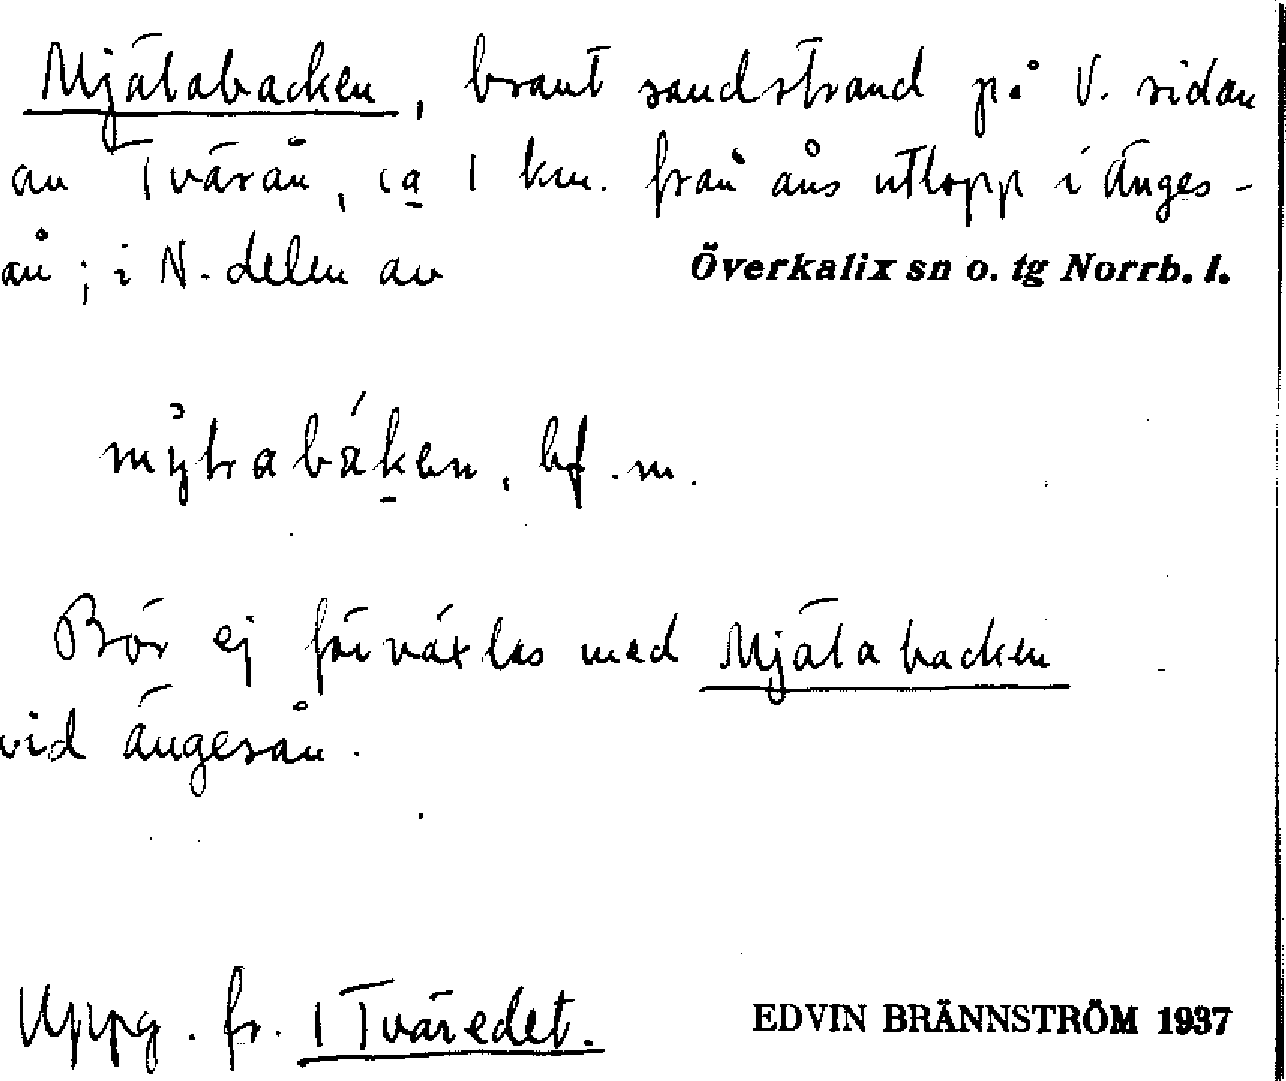 Mjälabacken, brant sandstrand på V. sidan
av Tvärån, ca 1 km. från åns utlopp i Änges-
ån; i N. delen av Överkalix sn o. tg Norrb. l.
bf. m.
Bör ej förväxlas med Mjälabacken
vid Ängesån.
Uppg. fr. 1 Tväredet.
EDVIN BRÄNNSTRÖM 1937